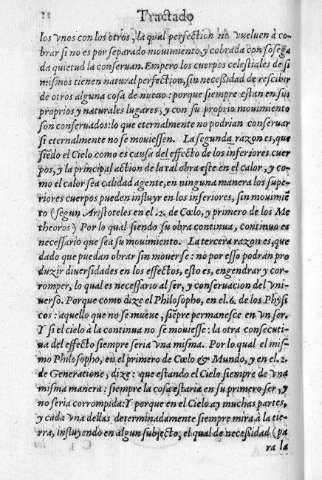 Tractado
los vnos con los otros, la qual perfection no vueluen à co-
brar si no es por separado mouimiento, y cobrada con sosega-
da quietud la conseruan. Empero los cuerpos celestiales de si
mismos tienen natural perfection, sin necessidad de rescibir
de otros alguna cosa de nueuo: porque siempre estan en sus
proprios y naturales lugares, y con su proprio mouimiento
son conseruados: lo que eternalmente no podrian conseruar
si eternalmente no se mouiessen. La segunda razon es, que
siẽdo el Cielo como es causa del effecto de los inferiores cuer-
pos, y la principal action de la tal obra este en el calor, y co-
mo el calor sea calidad agente, en ninguna manera los supe-
riores cuerpos pueden influyr en los inferiores, sin mouimiẽ-
to (segun Aristoteles en el .2. de Cœlo, y primero de los Me-
theoros) Por lo qual siendo su obra continua, continuo es
necessario que sea su mouimiento. La tercera razon es, que
dado que puedan obrar sin mouerse: no por esso podrán pro-
duzir diuersidades en los effectos, esto es, engendrar y cor-
romper, lo qual es necessario al ser, y conseruacion del vni-
uerso. Porque como dize el Philosopho, en el .6. de los Physi-
cos: aquello que no se mueue, siẽpre permanesce en vn ser.
Y si el cielo à la continua no se mouiesse: la otra consecuti-
ua del effecto siempre seria vna misma. Por lo qual el mis-
mo Philosopho, en el primero de Cœlo & Mundo, y en el .2.
de Generatione, dize: que estando el Cielo siempre de vna
misma manera: siempre la cosa estaria en su primero ser, y
no seria corrompida: Y porque en el Cielo ay muchas partes,
y cada vna dellas determinadamente siempre mira à la tie-
rra, influyendo en algun subjecto, el qual de necessidad (pa
ra la